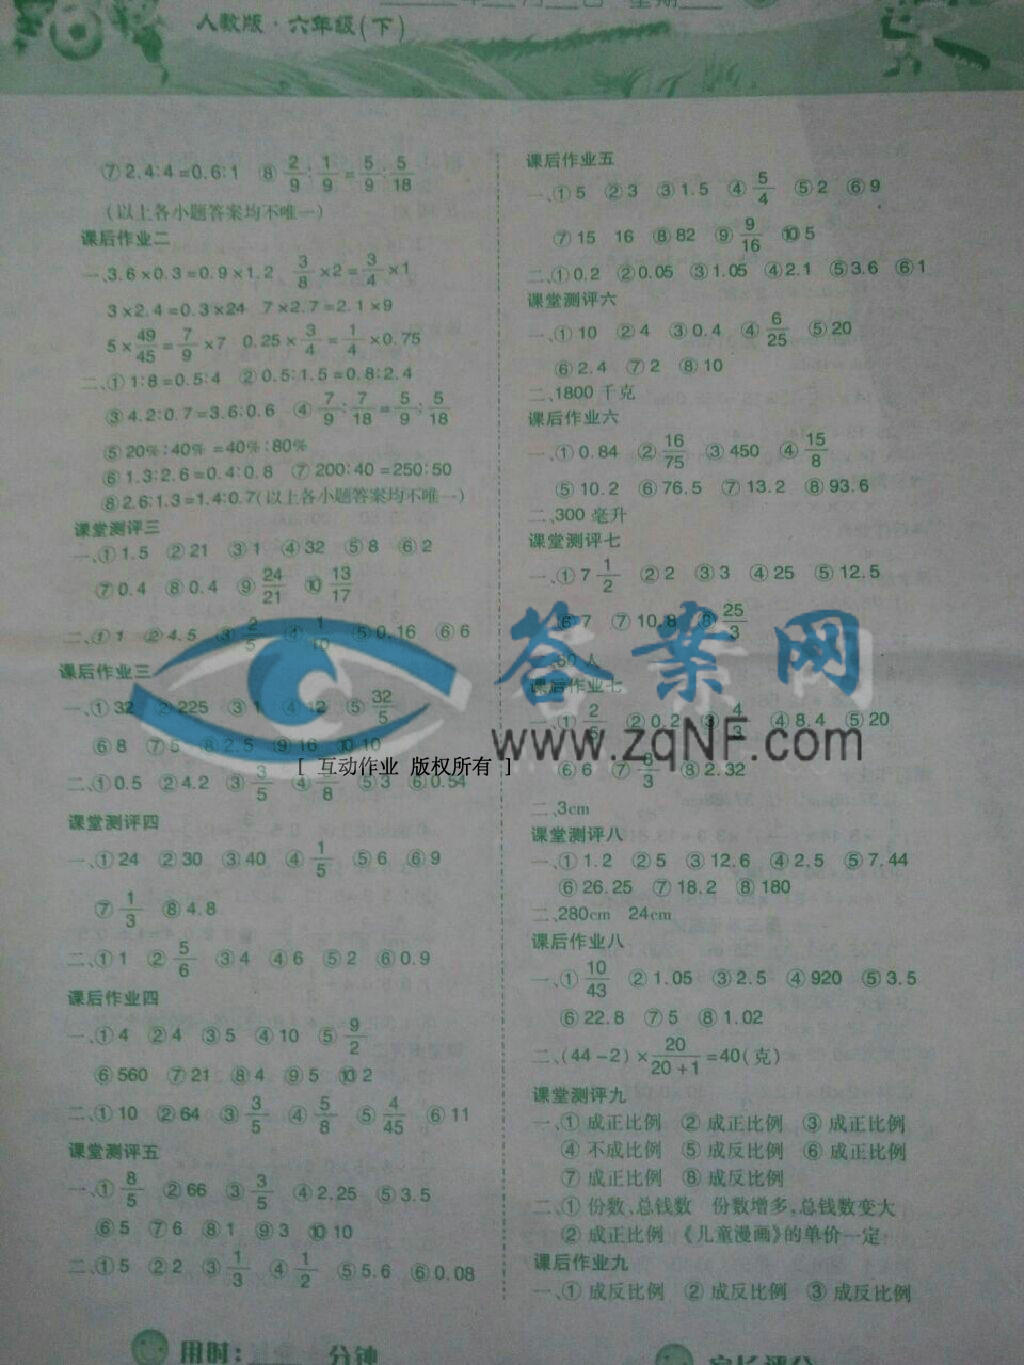 人教版·六年级(下)
⑦2.4:4=0.6:1 ⑧2/9:1/9=5/9:5/18
(以上各小题答案均不唯一)
课后作业二
一、3.6×0.3=0.9×1.2 3/8×2=3/4×1
3×2.4=0.3×24 7×2.7=2.1×9
5×49/45=7/9×7 0.25×3/4=1/4×0.75
二、①1:8=0.5:4 ②0.5:1.5=0.8:2.4
③4.2:0.7=3.6:0.6 ④7/9:7/18=5/9:5/18
⑤20%:40%=40%:80%
⑥1.3:2.6=0.4:0.8 ⑦200:40=250:50
⑧2.6:1.3=1.4:0.7(以上各小题答案均不唯一)
课堂测评三
一、①1.5 ②21 ③1 ④32 ⑤8 ⑥2
⑦0.4 ⑧0.4 ⑨24/21 ⑩13/17
二、①1 ②4.5 ③2/5 ④1/10 ⑤0.16 ⑥6
课后作业三
一、①32 ②225 ③1 ④12 ⑤32/5
⑥8 ⑦5 ⑧2.5 ⑨16 ⑩10
二、①0.5 ②4.2 ③3/5 ④ /8 ⑤3 ⑥0.54
课堂测评四
一、①24 ②30 ③40 ④1/5 ⑤6 ⑥9
⑦1/3 ⑧4.8
二、①1 ②5/6 ③4 ④6 ⑤2 ⑥0.9
课后作业四
一、①4 ②4 ③5 ④10 ⑤9/2
⑥560 ⑦21 ⑧4 ⑨5 ⑩2
二、①10 ②64 ③3/5 ④5/8 ⑤4/45 ⑥11
课堂测评五
一、①8/5 ②66 ③3/5 ④2.25 ⑤3.5
⑥5 ⑦6 ⑧1 ⑨3 ⑩10
二、①5 ②2 ③1/3 ④1/2 ⑤5.6 ⑥0.08
用时: 分钟
课后作业五
一、①5 ②3 ③1.5 ④5/4 ⑤2 ⑥9
⑦15 16 ⑧82 ⑨9/16 ⑩5
二、①0.2 ②0.05 ③1.05 ④2.1 ⑤3.6 ⑥1
课堂测评六
一、①10 ②4 ③0.4 ④6/25 ⑤20
⑥2.4 ⑦2 ⑧10
二、1800千克
课后作业六
一、①0.84 ②16/75 ③450 ④15/8
⑤10.2 ⑥76.5 ⑦13.2 ⑧93.6
二、300毫升
课堂测评七
一、①7 1/2 ②2 ③3 ④25 ⑤12.5
⑥7 ⑦10.8 ⑧25/3
60人
课后作业七
一、①2/5 ②0.2 ③4/3 ④8.4 ⑤20
⑥6 ⑦8/3 ⑧2.32
二、3cm
课堂测评八
一、①1.2 ②5 ③12.6 ④2.5 ⑤7.44
⑥26.25 ⑦18.2 ⑧180
二、280cm 24cm
课后作业八
一、①10/43 ②1.05 ③2.5 ④920 ⑤3.5
⑥22.8 ⑦5 ⑧1.02
二、(44-2)×20/20+1=40(克)
课堂测评九
一、①成正比例 ②成正比例 ③成正比例
④不成比例 ⑤成反比例 ⑥成正比例
⑦成正比例 ⑧成反比例
二、①份数、总钱数 份数增多,总钱数变大
②成正比例 《儿童漫画》的单价一定
课后作业九
一、①成反比例 ②成反比例 ③成反比例
家长评分
答案网
www.zqNF.com
[ 互动作业 版权所有 ]